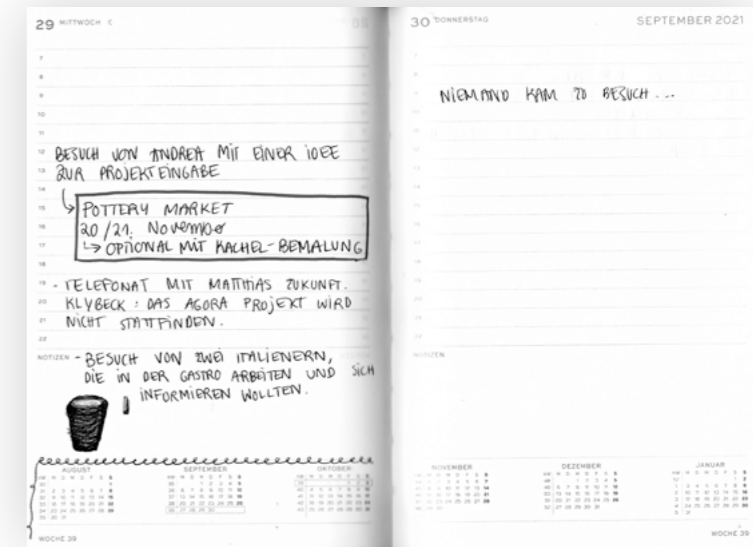 29 MITTWOCH C
7
8
9
10
11
12
BESUCH VON ANDREA MIT EINER IDEE
13
ZUR PROJEKTEINGABE
14
15
POTTERY MARKET
16
20/21. November
17
↳ OPTIONAL MIT KACHEL-BEMALUNG
18
19
- TELEFONAT MIT MATTHIAS ZUKUNFT.
20
KLYBECK: DAS AGORA PROJEKT WIRD
21
NICHT STATTFINDEN.
22
NOTIZEN - BESUCH VON ZWEI ITALIENERN,
DIE IN DER GASTRO ARBEITEN UND SICH
INFORMIEREN WOLLTEN.
AUGUST SEPTEMBER OKTOBER
WOCHE 39
30 DONNERSTAG SEPTEMBER 2021
NIEMAND KAM ZU BESUCH...
NOTIZEN
NOVEMBER DEZEMBER JANUAR
WOCHE 39